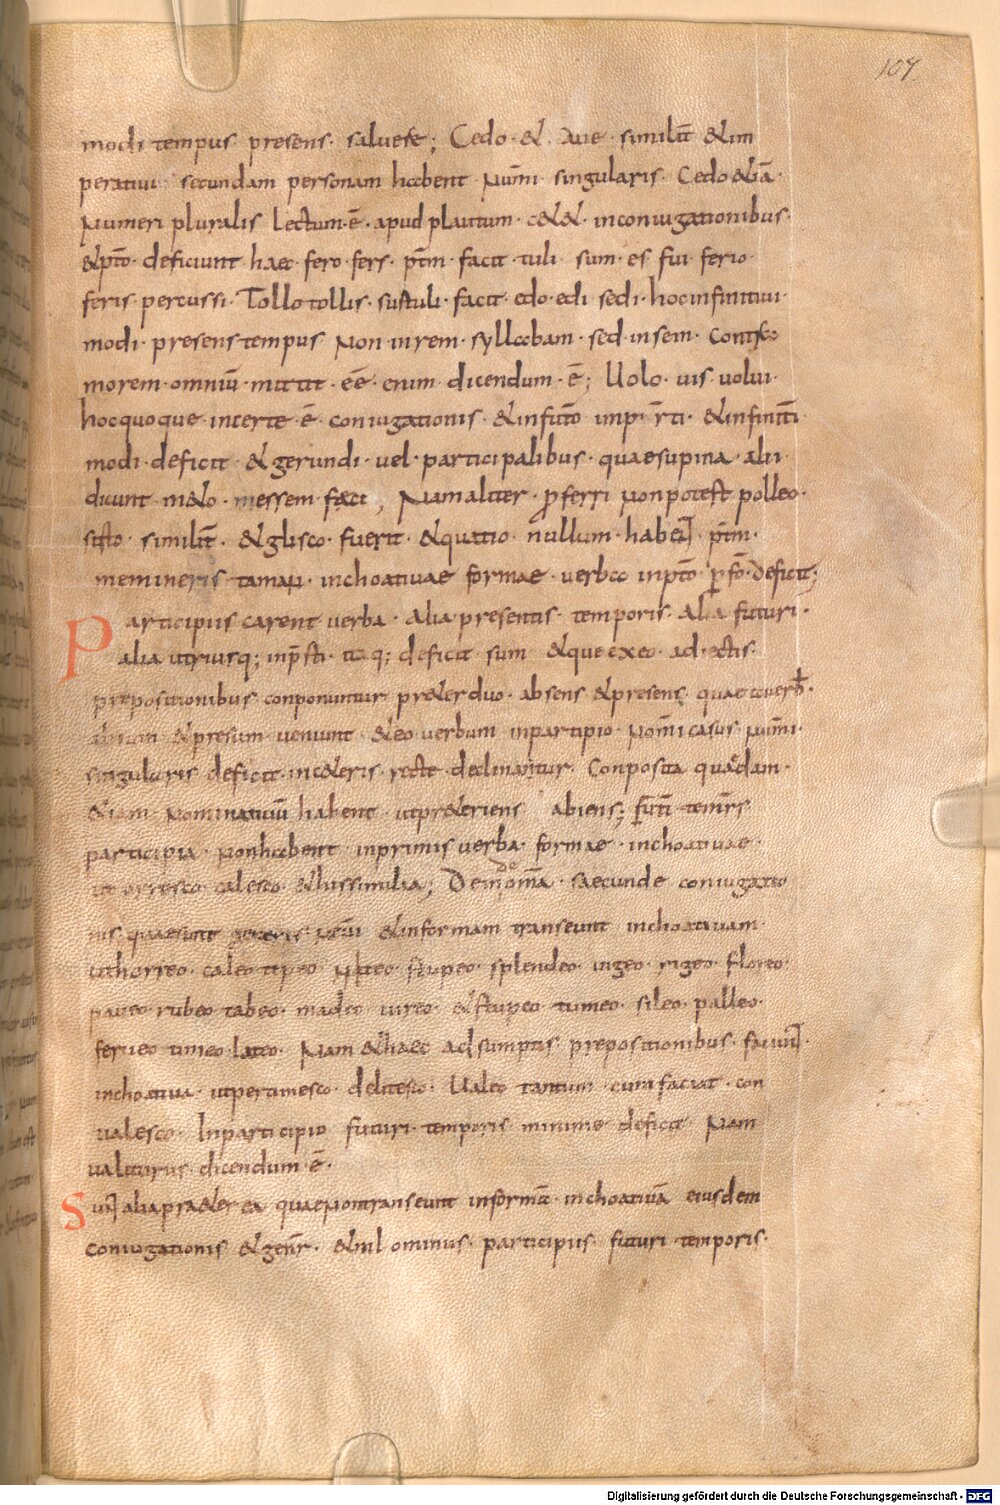 109
modi tempus presens · saluere ; Cedo · & · Aue · similit̄ & im
peratiui secundam personam habent Num̄i · singularis · Cedo & iā ·
Numeri pluralis lectum · ē · apud plautum · c&& · inconiugationibus ·
& p̄to · deficiunt haec · fero · fers · p̄tm · facit · tuli · sum · es · fui · ferio ·
feris · percussi · Tollo tollis · sustuli · facit · edo · edi · sedi · hoc infinitiui ·
modi · presens tempus Non in rem · syllabam · sed in sem · Contra
morem · omniū · mittit · eē · enim · dicendum · ē ; Uolo · uis · uolui ·
hoc quoque · incerte · ē · coniugationis · & in fut̄o imp̄r̄ti · & infinit̄i
modi · deficit · & gerundi · uel · participalibus · quae supina · alii ·
dicunt · m&o · messem · feci ; Nam aliter · p̄ferri Non potest polleo ·
sisto · similit̄ · & glisco · fuerit · & quatio · nullum · habent · p̄tm ·
memineris · tamen · inchoatiuae · formae · uerba in p̄to · p̄fc̄o · deficit ;
Participiis carent uerba · Alia presentis · temporis · Alia futuri ·
Alia utriusq; in p̄sti · itaq; deficit · sum & que ex eo · ad · ectis ·
prepositionibus · conponuntur pr&er duo · absens & presens · quae ab uerb̄ ·
absum & presum · ueniunt · & eo uerbum in partipio · Nom̄i casus · Num̄i ·
singularis · deficit · in c&eris · recte · declinantur · Conposita quaedam ·
& iam · Nominatiuū habent · ut pr&eriens abiens ; fut̄i · temp̄rs
participia · Non habent in primis uerba · formae · inchoatiuae ·
ut orresco calesco · & his similia ; De moma de · saecunde coniugatio
nis · quae sunt generis Neut̄i & in formam transeunt inchoatiuam ·
ut horreo · caleo · tepeo · Niteo · stupeo · splendeo · uigeo · rigeo · floreo ·
paueo · rubeo · tabeo · madeo · uireo · & stupeo · tumeo · sileo · palleo ·
ferueo · timeo · lateo · Nam & haec adsumptis prepositionibus · faciunt ·
inchoatiua · ut pertimesco · delitesco · Ualeo tantum · cum faciat · con
ualesco · In participio futuri · temporis · minime · deficit Nam
ualiturus · dicendum · ē ·
Sunt alia pra&er ea quae Non transeunt in formā · inchoatiuā eiusdem
coniugationis & gen̄r · & nil ominus · participiis · futuri · temporis ·
Digitalisierung gefördert durch die Deutsche Forschungsgemeinschaft - DFG